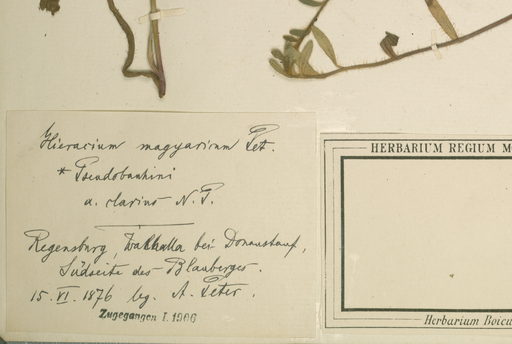 Hieracium magyaricum Pet.
* Pseudobauhini
α. clarius N. P.
Regensburg, Walhalla bei Donaustauf,
Südseite des Blauberges.
15. VI. 1876 leg. A. Peter.
Zugegangen I. 1906
HERBARIUM REGIUM M
Herbarium Boicu